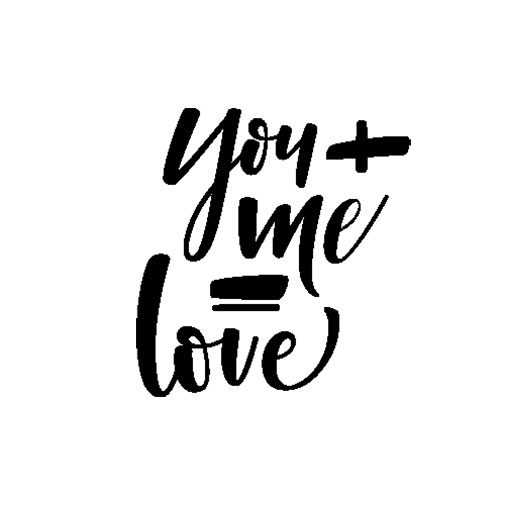 you +
me
=
love